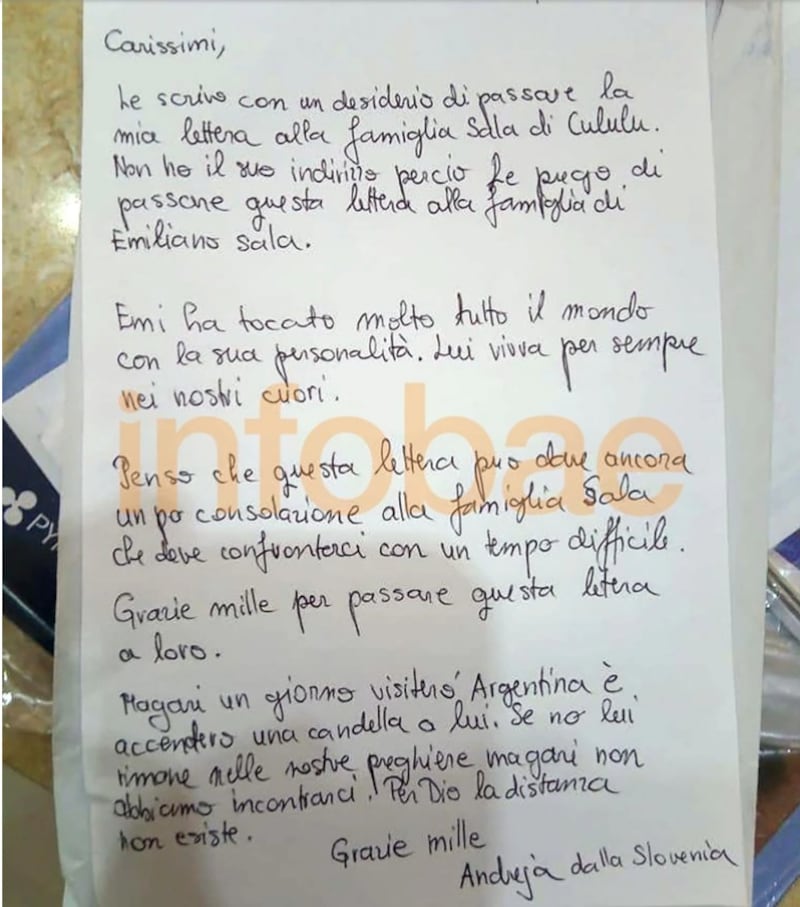 Carissimi,
Le scrivo con un desiderio di passare la
mia lettera alla famiglia Sala di Cululu.
Non ho il suo indirizzo percio Le prego di
passare questa lettera alla famiglia di
Emiliano Sala.
Emi ha tocato molto tutto il mondo
con la sua personalità. Lui vivva per sempre
nei nostri cuori.
infobae
Penso che questa lettera puo dare ancora
un po consolazione alla famiglia Sala
che deve confrontarci con un tempo difficile.
PY
Grazie mille per passare questa letera
a loro.
Magari un giorno visiterò Argentina è
accenderò una candella a lui. Se no lui
rimane nelle nostre preghiere magari non
abbiamo incontranci! Per Dio la distanza
non esiste.
Grazie mille
Andreja dalla Slovenia